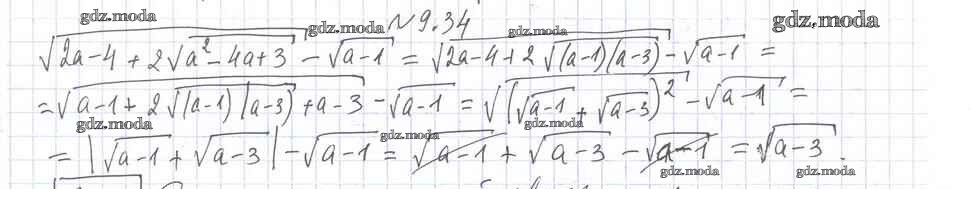 gdz.moda
№ 9.34
gdz.moda
gdz.moda
gdz.moda
√(2a-4+2√(a²-4a+3)) - √(a-1) = √(2a-4+2√((a-1)(a-3))) - √(a-1) =
= √(a-1+2√((a-1)(a-3))+a-3) - √(a-1) = √((√(a-1)+√(a-3))²) - √(a-1) =
gdz.moda
gdz.moda
gdz.moda
= |√(a-1)+√(a-3)| - √(a-1) = √(a-1)+√(a-3)-√(a-1) = √(a-3).
gdz.moda
gdz.moda